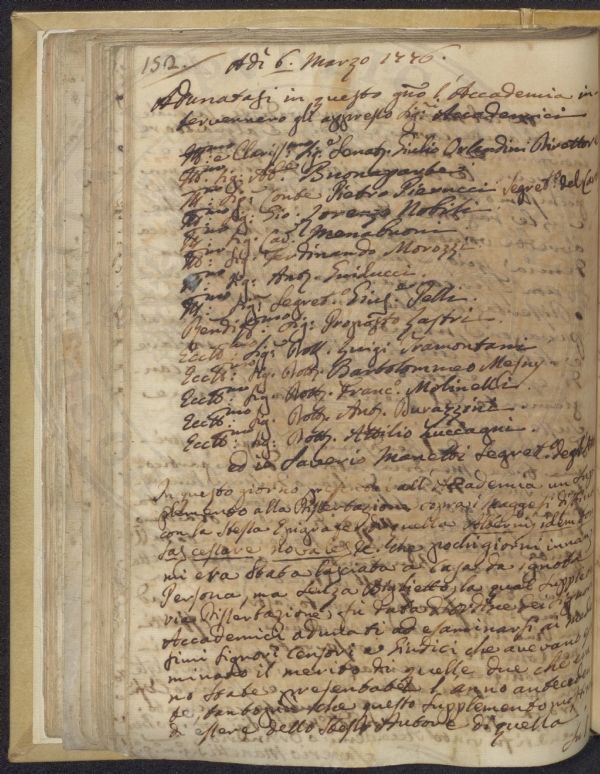 152.
Adì 6. Marzo 1776.
Adunatasi in questo gno l'Accademia in-
tervennero gli appresso Sigri. Accademici
Illmo: e Clarissmo Sigre Senatre Giulio Orlandini Direttore
Illmo: Sigre Abe Buonaparte
Illmo: Sigre Conte Pietro Pierucci Segreto del
Illmo: Sigre Gio: Lorenzo Nobili
Illmo: Sigre Cav. Menabuoni
Illmo: Sigre Ferdinando Morozzi
Illmo: Sigre Anto. Guiducci.
Illmo: Sigre Segreto Giuse Pelli
Rendissmo: Sigre Proposto Lastri
Eccmo: Sigre Dott. Luigi Tramontani
Eccmo: Sigre Dott. Bartolommeo Mesny
Eccmo: Sigre Dott. Franco. Molinelli
Eccmo: Sigre Dott. Anto. Durazzini
Eccmo: Sigre Dott. Attilio Zuccagni.
ed io Saverio Manetti Segreto. degli
In questo giorno all'Accademia un Sup
plemento alla Dissertazione
con la stessa Epigrafe di quella
sas cessare novales &c. che pochi giorni innanzi
mi era stata lasciata a Casa da ignota
Persona, ma senza Biglietto, la qual Supple
via Dissertazione, fu data
Accademici adunati ad esaminarsi ai
simi Signori Censori e Giudici che avevano
minato il merito di quelle due che
no state presentate l'anno antecedente
te, tantopiù che questo supplemento
di essere dello stesso Autore di quella